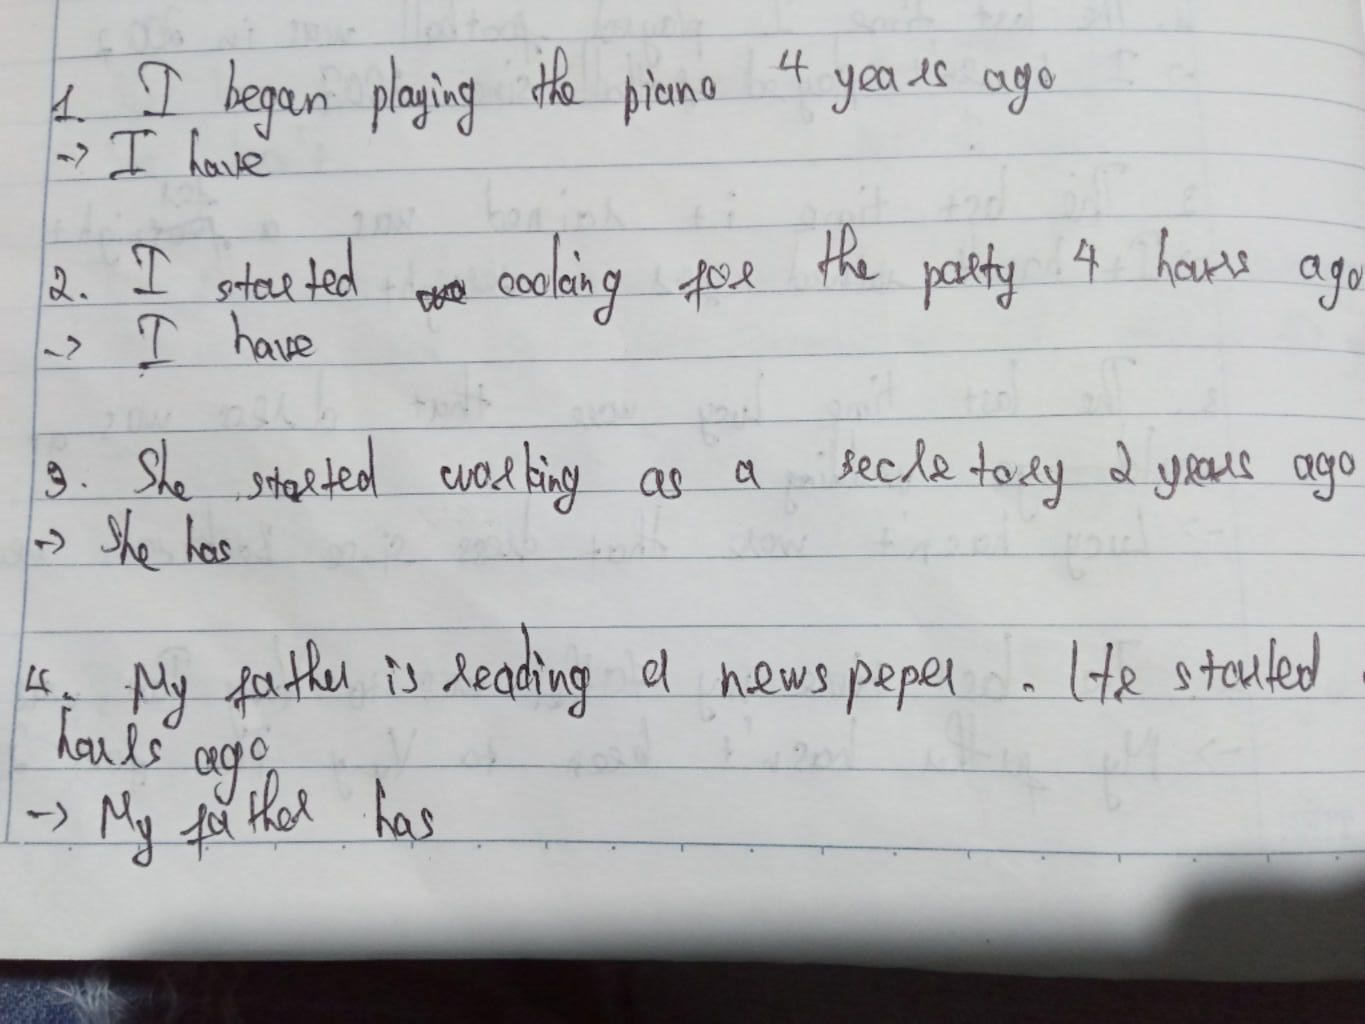 1. I began playing the piano 4 years ago
-> I have
2. I started cooking for the party 4 hours ago
-> I have
3. She started working as a secretary 2 years ago
-> She has
4. My father is reading a newspeper. He started
hours ago
-> My father has